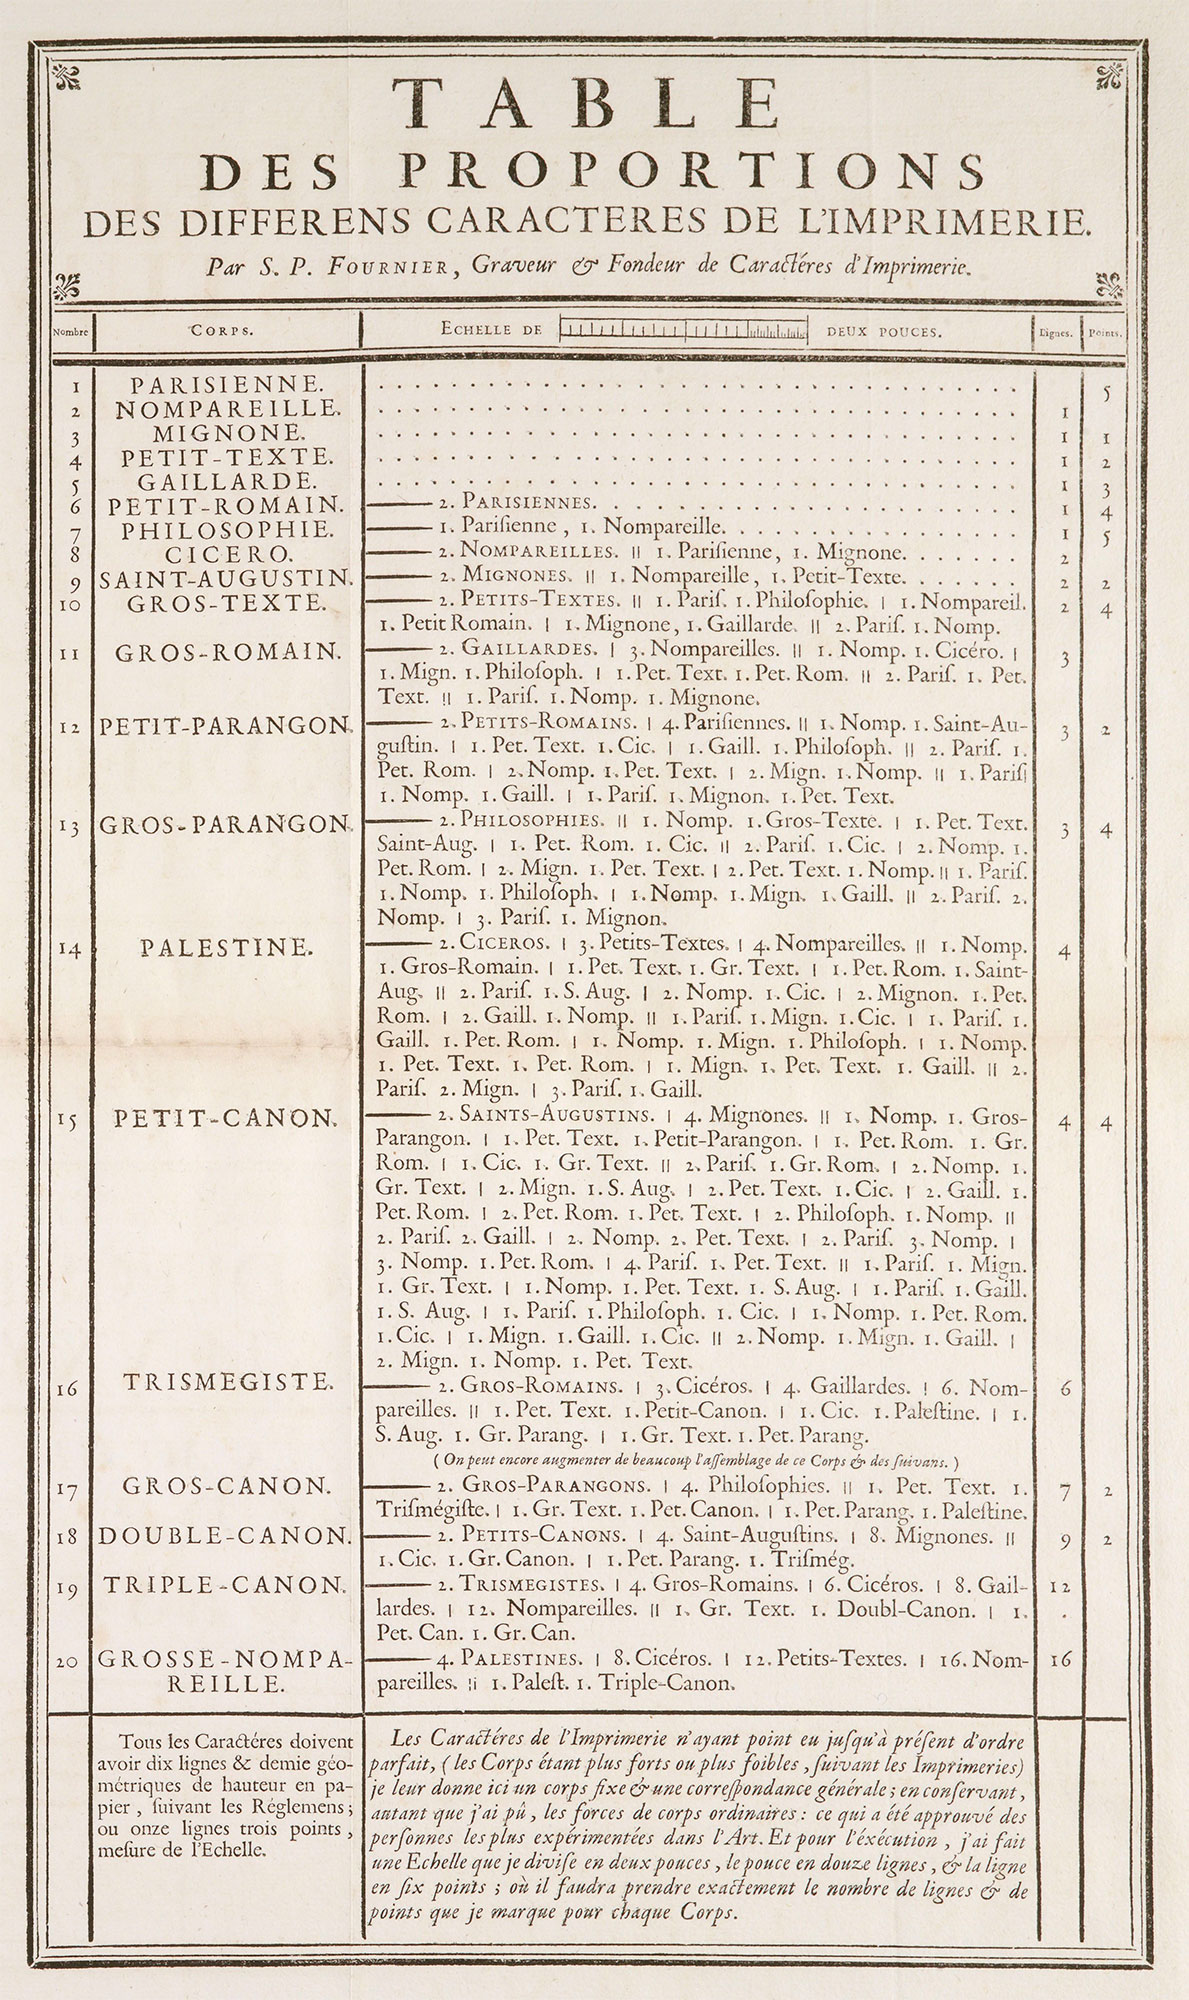 TABLE
DES PROPORTIONS
DES DIFFERENS CARACTERES DE L'IMPRIMERIE.
Par S. P. FOURNIER, Graveur & Fondeur de Caractéres d'Imprimerie.
Nombre CORPS. ECHELLE DE DEUX POUCES. Lignes. Points.
1 PARISIENNE. 5
2 NOMPAREILLE. 1
3 MIGNONE. 1 1
4 PETIT-TEXTE. 1 2
5 GAILLARDE. 1 3
6 PETIT-ROMAIN. 2. PARISIENNES. 1 4
7 PHILOSOPHIE. 1. Pariſienne, 1. Nompareille. 1 5
8 CICERO. 2. NOMPAREILLES. || 1. Pariſienne, 1. Mignone. 2
9 SAINT-AUGUSTIN. 2. MIGNONES. || 1. Nompareille, 1. Petit-Texte. 2 2
10 GROS-TEXTE. 2. PETITS-TEXTES. || 1. Pariſ. 1. Philoſophie. | 1. Nompareil. 2 4
1. Petit Romain. | 1. Mignone, 1. Gaillarde. || 2. Pariſ. 1. Nomp.
11 GROS-ROMAIN. 2. GAILLARDES. | 3. Nompareilles. || 1. Nomp. 1. Cicéro. | 3
1. Mign. 1. Philoſoph. | 1. Pet. Text. 1. Pet. Rom. || 2. Pariſ. 1. Pet.
Text. || 1. Pariſ. 1. Nomp. 1. Mignone.
12 PETIT-PARANGON. 2. PETITS-ROMAINS. | 4. Pariſiennes. || 1. Nomp. 1. Saint-Au- 3 2
guſtin. | 1. Pet. Text. 1. Cic. | 1. Gaill. 1. Philoſoph. || 2. Pariſ. 1.
Pet. Rom. | 2. Nomp. 1. Pet. Text. | 2. Mign. 1. Nomp. || 1. Pariſi
1. Nomp. 1. Gaill. | 1. Pariſ. 1. Mignon. 1. Pet. Text.
13 GROS-PARANGON. 2. PHILOSOPHIES. || 1. Nomp. 1. Gros-Texte. | 1. Pet. Text. 3 4
Saint-Aug. | 1. Pet. Rom. 1. Cic. || 2. Pariſ. 1. Cic. | 2. Nomp. 1.
Pet. Rom. | 2. Mign. 1. Pet. Text. | 2. Pet. Text. 1. Nomp. || 1. Pariſ.
1. Nomp. 1. Philoſoph. | 1. Nomp. 1. Mign. 1. Gaill. || 2. Pariſ. 2.
Nomp. | 3. Pariſ. 1. Mignon.
14 PALESTINE. 2. CICEROS. | 3. Petits-Textes. | 4. Nompareilles. || 1. Nomp. 4
1. Gros-Romain. | 1. Pet. Text. 1. Gr. Text. | 1. Pet. Rom. 1. Saint-
Aug. || 2. Pariſ. 1. S. Aug. | 2. Nomp. 1. Cic. | 2. Mignon. 1. Pet.
Rom. | 2. Gaill. 1. Nomp. || 1. Pariſ. 1. Mign. 1. Cic. | 1. Pariſ. 1.
Gaill. 1. Pet. Rom. | 1. Nomp. 1. Mign. 1. Philoſoph. | 1. Nomp.
1. Pet. Text. 1. Pet. Rom. | 1. Mign. 1. Pet. Text. 1. Gaill. || 2.
Pariſ. 2. Mign. | 3. Pariſ. 1. Gaill.
15 PETIT-CANON. 2. SAINTS-AUGUSTINS. | 4. Mignones. || 1. Nomp. 1. Gros- 4 4
Parangon. | 1. Pet. Text. 1. Petit-Parangon. | 1. Pet. Rom. 1. Gr.
Rom. | 1. Cic. 1. Gr. Text. || 2. Pariſ. 1. Gr. Rom. | 2. Nomp. 1.
Gr. Text. | 2. Mign. 1. S. Aug. | 2. Pet. Text. 1. Cic. | 2. Gaill. 1.
Pet. Rom. | 2. Pet. Rom. 1. Pet. Text. | 2. Philoſoph. 1. Nomp. ||
2. Pariſ. 2. Gaill. | 2. Nomp. 2. Pet. Text. | 2. Pariſ. 3. Nomp. |
3. Nomp. 1. Pet. Rom. | 4. Pariſ. 1. Pet. Text. || 1. Pariſ. 1. Mign.
1. Gr. Text. | 1. Nomp. 1. Pet. Text. 1. S. Aug. | 1. Pariſ. 1. Gaill.
1. S. Aug. | 1. Pariſ. 1. Philoſoph. 1. Cic. | 1. Nomp. 1. Pet. Rom.
1. Cic. | 1. Mign. 1. Gaill. 1. Cic. || 2. Nomp. 1. Mign. 1. Gaill. |
2. Mign. 1. Nomp. 1. Pet. Text.
16 TRISMEGISTE. 2. GROS-ROMAINS. | 3. Cicéros. | 4. Gaillardes. | 6. Nom- 6
pareilles. || 1. Pet. Text. 1. Petit-Canon. | 1. Cic. 1. Paleſtine. | 1.
S. Aug. 1. Gr. Parang. | 1. Gr. Text. 1. Pet. Parang.
( On peut encore augmenter de beaucoup l'aſſemblage de ce Corps & des ſuivans. )
17 GROS-CANON. 2. GROS-PARANGONS. | 4. Philoſophies. || 1. Pet. Text. 1. 7 2
Triſmégiſte. | 1. Gr. Text. 1. Pet. Canon. | 1. Pet. Parang. 1. Paleſtine.
18 DOUBLE-CANON. 2. PETITS-CANONS. | 4. Saint-Auguſtins. | 8. Mignones. || 9 2
1. Cic. 1. Gr. Canon. | 1. Pet. Parang. 1. Triſmég.
19 TRIPLE-CANON. 2. TRISMEGISTES. | 4. Gros-Romains. | 6. Cicéros. | 8. Gail- 12
lardes. | 12. Nompareilles. || 1. Gr. Text. 1. Doubl-Canon. | 1.
Pet. Can. 1. Gr. Can.
20 GROSSE-NOMPA- 4. PALESTINES. | 8. Cicéros. | 12. Petits-Textes. | 16. Nom- 16
REILLE. pareilles. || 1. Paleſt. 1. Triple-Canon.
Tous les Caractéres doivent
avoir dix lignes & demie géo-
métriques de hauteur en pa-
pier, ſuivant les Réglemens;
ou onze lignes trois points,
meſure de l'Echelle.
Les Caractéres de l'Imprimerie n'ayant point eu juſqu'à préſent d'ordre
parfait, (les Corps étant plus forts ou plus foibles, ſuivant les Imprimeries)
je leur donne ici un corps fixe & une correſpondance générale; en conſervant,
autant que j'ai pû, les forces de corps ordinaires: ce qui a été approuvé des
perſonnes les plus expérimentées dans l'Art. Et pour l'éxécution, j'ai fait
une Echelle que je diviſe en deux pouces, le pouce en douze lignes, & la ligne
en ſix points; où il faudra prendre exactement le nombre de lignes & de
points que je marque pour chaque Corps.